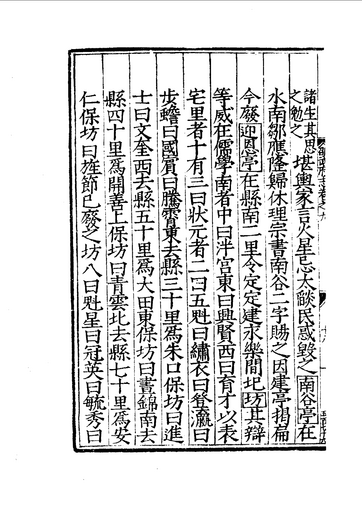 諸生其思
之勉之
堪輿家言火星忌太燄民惑毀之南谷亭在
水南鄒應隆歸休理宗書南谷二字賜之因建亭揭扁
今廢迎恩亭在縣南二里令定定建永樂間圯坊其辯
等威在儒學南者中曰泮宮東曰興賢西曰育才以表
宅里者十有三曰狀元者二曰五魁曰繡衣曰登瀛曰
步蟾曰國賓曰騰霄東去縣三十里爲朱口保坊曰進
士曰文奎西去縣五十里爲大田東保坊曰晝錦南去
縣四十里爲開善上保坊曰青雲北去縣七十里爲安
仁保坊曰旌節已廢之坊八曰魁星曰冠英曰毓秀曰